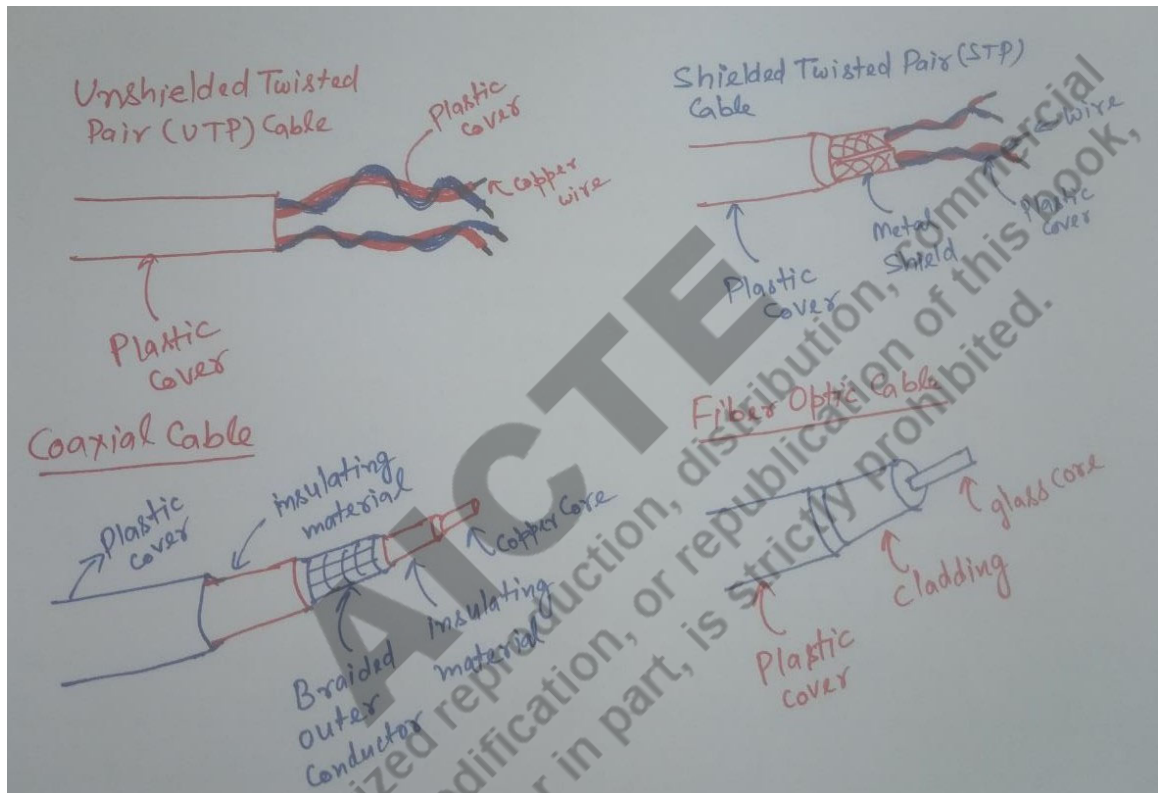 Unshielded Twisted
Pair (UTP) Cable
Plastic
cover
copper
wire
Plastic
cover
Shielded Twisted Pair (STP)
Cable
wire
Plastic
cover
Metal
Shield
Plastic
cover
Coaxial Cable
Plastic
cover
insulating
material
copper core
insulating
material
Braided
outer
conductor
Fiber Optic Cable
glass core
cladding
Plastic
cover
AICTE
ized reproduction, distribution, commercial
odification, or republication of this book,
r in part, is strictly prohibited.